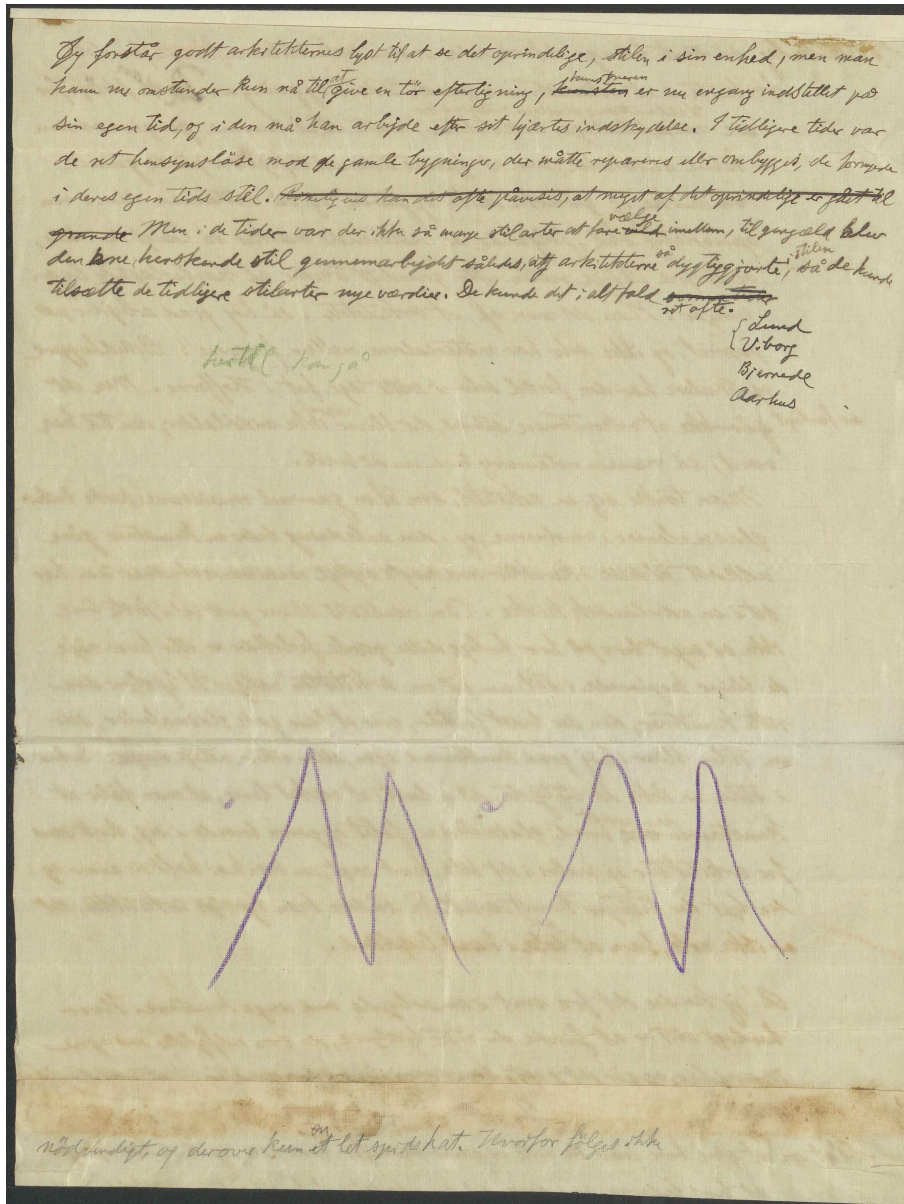 Jeg forstår godt arkitekternes lyst til at se det oprindelige, stilen i sin enhed, men man
kann nu omstunder kun nå til at give en tör efterligning, kunsten kunstneren er nu engang indstillet på
sin egen tid, og i den må han arbejde efter sit hjærtes indskydelse. I tidligere tider var
de ret hensynslöse mod de gamle bygninger, der måtte repareres eller ombygges, de
i deres egen tids stil. kan det ofte påvises, at meget af det oprindelige er gået til
grunde Men i de tider var der ikke så mange stilarter at vælge imellem, til gengæld blev
den ene herskende stil gennemarbejdet således, at arkitekterne så dygtiggjorte i stilen, så de kunde
tilsætte de tidligere stilarter nye værdier. De kunde det i alt fald
ret ofte.
Lund
Viborg
Bjernede
Aarhus
hertil kan gå
nödvendigt, og derover kun en et let spids hat. Hvorfor følges ikke